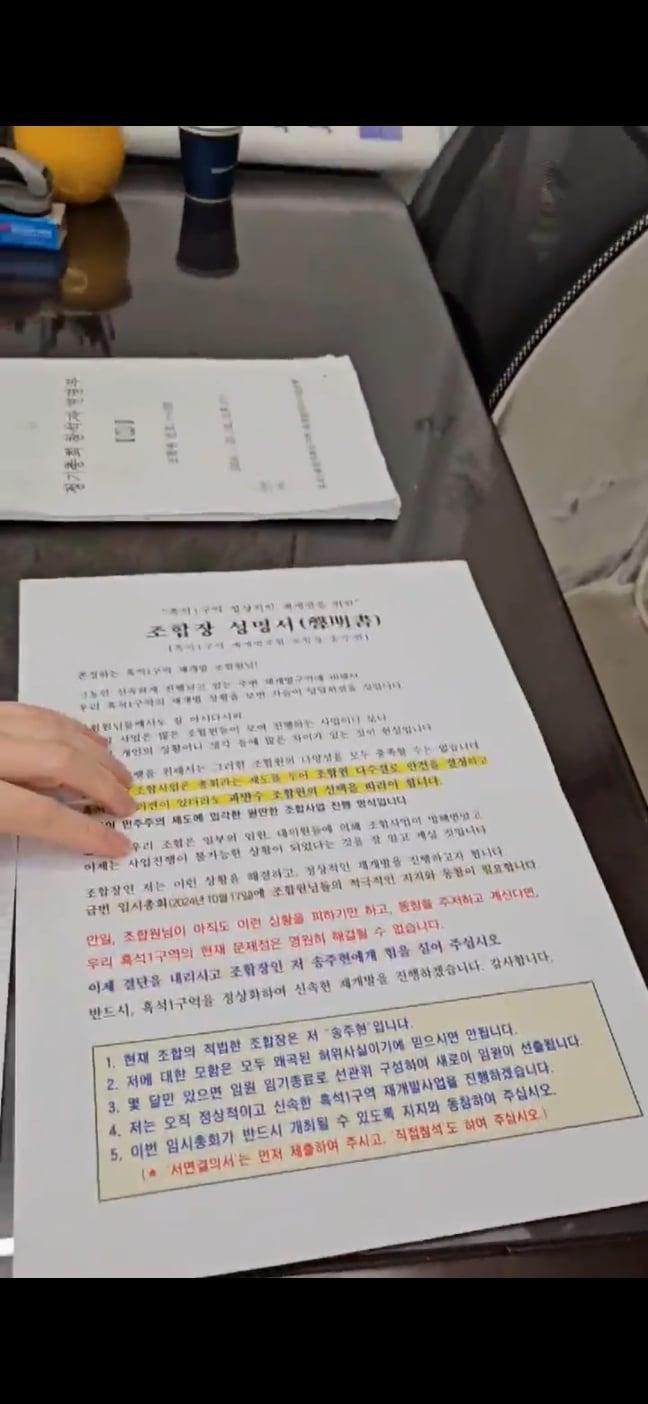 "흑석1구역 정상적인 재개발을 위한"
조합장 성명서(聲明書)
존경하는 흑석1구역 재개발 조합원님!
그동안 신속하게 진행되고 있는 주변 재개발구역에 비해서
우리 흑석1구역의 재개발 상황을 보면 가슴이 답답하셨을 것입니다
조합원님들께서도 잘 아시다시피
사업은 많은 조합원들이 모여 진행하는 사업이다 보니
개인의 상황이나 생각 등에 많은 차이가 있는 것이 현실입니다
위해서는 그러한 조합원의 다양성을 모두 충족할 수는 없습니다
조합사업은 총회라는 제도를 두어 조합원 다수결로 안건을 결정하고
이견이 있더라도 과반수 조합원의 선택을 따라야 합니다.
민주주의 제도에 입각한 원만한 조합사업 진행 방식입니다
우리 조합은 일부의 임원, 대의원들에 의해 조합사업이 방해받았고
이제는 사업진행이 불가능한 상황이 되었다는 것을 잘 알고 계실 것입니다
조합장인 저는 이런 상황을 해결하고, 정상적인 재개발을 진행하고자 합니다
금번 임시총회(2024년 10월 17일)에 조합원님들의 적극적인 지지와 동참이 필요합니다
만일, 조합원님이 아직도 이런 상황을 피하기만 하고, 동참을 주저하고 계신다면,
우리 흑석1구역의 현재 문제점은 영원히 해결될 수 없습니다.
이제 결단을 내리시고 조합장인 저 송주현에게 힘을 실어 주십시오
반드시, 흑석1구역을 정상화하여 신속한 재개발을 진행하겠습니다. 감사합니다.
1. 현재 조합의 적법한 조합장은 저 "송주현"입니다.
2. 저에 대한 모함은 모두 왜곡된 허위사실이기에 믿으시면 안됩니다.
3. 몇 달만 있으면 임원 임기종료로 선관위 구성하여 새로이 임원이 선출됩니다.
4. 저는 오직 정상적이고 신속한 흑석1구역 재개발사업을 진행하겠습니다.
5. 이번 임시총회가 반드시 개최될 수 있도록 지지와 동참하여 주십시오.
(★ '서면결의서'는 먼저 제출하여 주시고, '직접참석'도 하여 주십시오.)